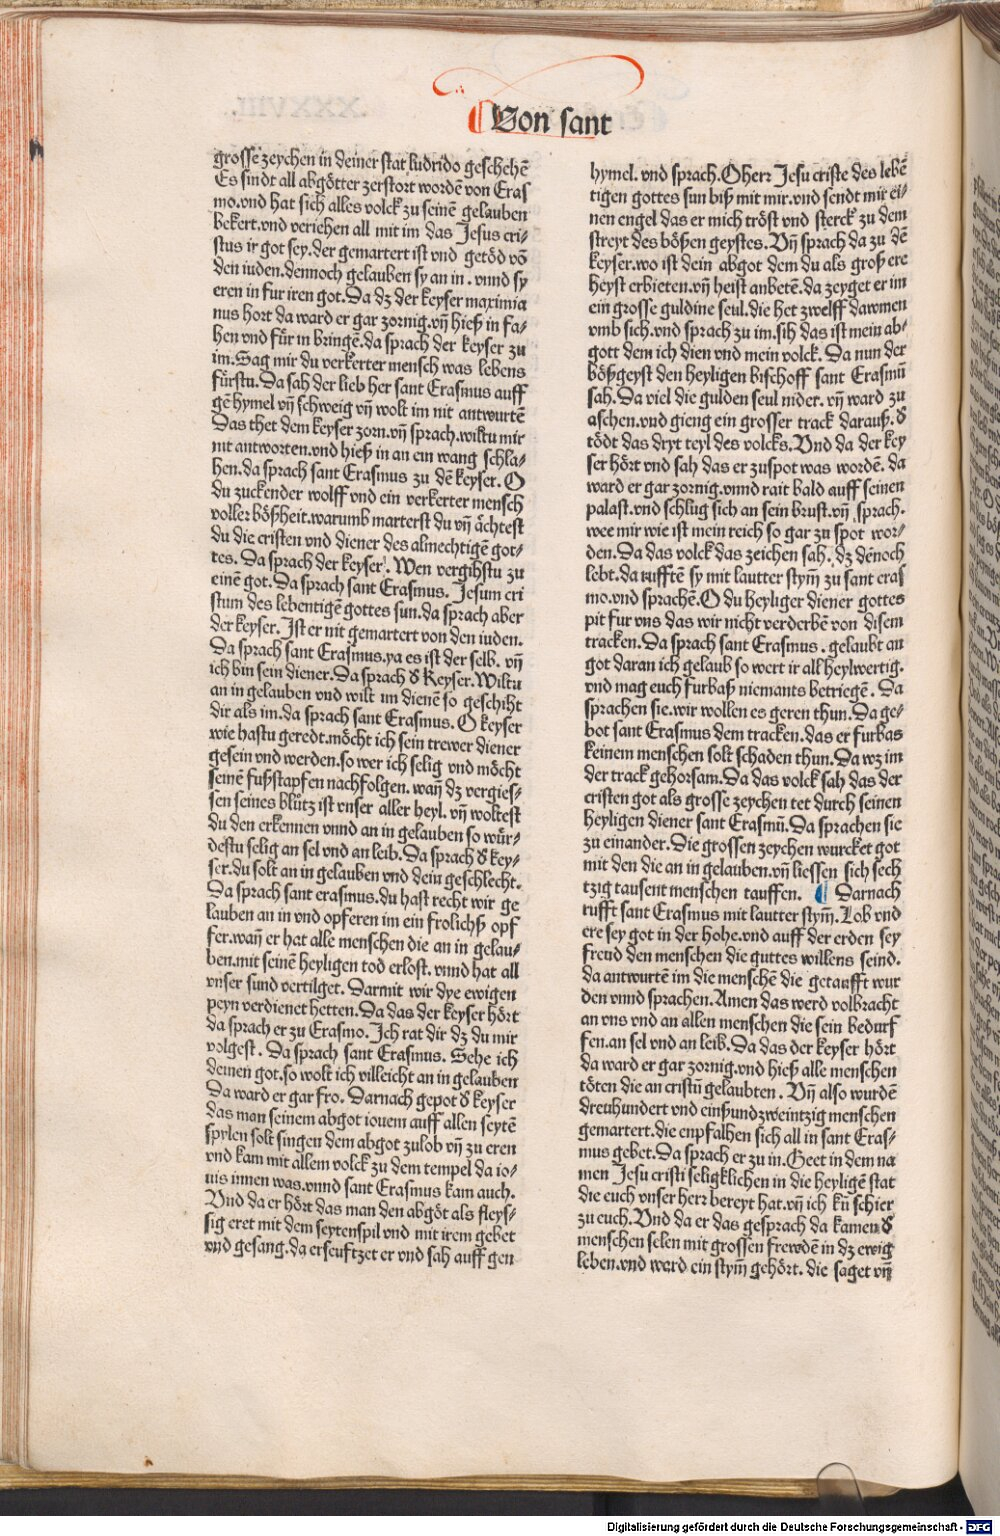 Von sant
grosse zeychen in deiner stat ludrido geschehē
Es sindt all abgötter zerstort wordē von Eras
mo.vnd hat sich alles volck zu seinē gelauben
bekert.vnd veriehen all mit im das Jesus cri⸗
stus ir got sey.der gemartert ist vnd getöd vō
den iuden.dennoch gelauben sy an in . vnnd sy
eren in fur iren got.Da dz der keyser maximia
nus hort da ward er gar zornig.vn̄ hieß in fa⸗
hen vnd für in bringē.da sprach der keyser zu
im.Sag mir du verkerter mensch was lebens
fürstu.Da sah der lieb her sant Erasmus auff
gē hymel vn̄ schweig vn̄ wolt im nit antwurtē
Das thet dem keyser zorn.vn̄ sprach.wiltu mir
nit antworten.vnd hieß in an ein wang schla⸗
hen.da sprach sant Erasmus zu dē keyser. O
du zuckender wolff vnd ein verkerter mensch
voller bößheit.warumb marterst du vn̄ ächtest
du die cristen vnd diener des almechtigē got⸗
tes. Da sprach der keyser. Wen vergihstu zu
einē got.Da sprach sant Erasmus. Jesum cri
stum des lebentigē gottes sun.da sprach aber
der keyser.Ist er nit gemartert von den iuden.
Da sprach sant Erasmus.ya es ist der selb. vn̄
ich bin sein diener.Da sprach d̛ Keyser.Wiltu
an in gelauben vnd wilt im dienē so geschiht
dir als im.da sprach sant Erasmus. O keyser
wie hastu geredt.möcht ich sein trewer diener
gesein vnd werden.so wer ich selig vnd möcht
seinē fußstapfen nachfolgen. wan̄ dz vergies⸗
sen seines blůtz ist vnser aller heyl. vn̄ woltest
du den erkennen vnnd an in gelauben so wür⸗
destu selig an sel vnd an leib. Da sprach d̛ key⸗
ser.du solt an in gelauben vnd dein geschlecht.
Da sprach sant erasmus.du hast recht wir ge
lauben an in vnd opferen im ein frolichs opf
fer.wan̄ er hat alle menschen die an in gelau⸗
ben.mit seinē heyligen tod erlost. vnnd hat all
vnser sund vertilget. Darmit wir dye ewigen
peyn verdienet hetten.Da das der keyser hört
da sprach er zu Erasmo.Ich rat dir dz du mir
volgest. Da sprach sant Erasmus. Sehe ich
deinen got.so wolt ich villeicht an in gelauben
Da ward er gar fro. Darnach gepot d̛ keyser
das man seinem abgot iouem auff allen seytē
spylen solt singen dem abgot zulob vn̄ zu eren
vnd kam mit allem volck zu dem tempel da io⸗
uis innen was.vnnd sant Erasmus kam auch.
Vnd da er hört das man den abgöt als fleys⸗
sig eret mit dem seytenspil vnd mit irem gebet
vnd gesang.da erseuftzet er vnd sah auff gen
hymel. vnd sprach.O herr Jesu criste des lebē
tigen gottes sun biß mit mir.vnd sendt mir ei⸗
nen engel das er mich tröst vnd sterck zu dem
streyt des bößen geystes. Vn̄ sprach da zu dē
keyser.wo ist dein abgot dem du als groß ere
heyst erbieten.vn̄ heist anbetē.da zeyget er im
ein grosse guldine seul.die het zwelff dawmen
vmb sich.vnd sprach zu im.sih das ist mein ab⸗
gott dem ich dien vnd mein volck. Da nun der
bößgeyst den heyligen bischoff sant Erasmū
sah. Da viel die gulden seul nider. vn̄ ward zu
aschen.vnd gieng ein grosser track darauß. d̛
tödt das dryt teyl des volcks. Vnd da der key
ser hört vnd sah das er zuspot was wordē. da
ward er gar zornig.vnnd rait bald auff seinen
palast.vnd schlug sich an sein brust.vn̄ sprach.
wee mir wie ist mein reich so gar zu spot wor⸗
den. Da das volck das zeichen sah. dz dēnoch
lebt.da rufftē sy mit lautter stym̄ zu sant eras
mo.vnd sprachē. O du heyliger diener gottes
pit fur vns das wir nicht verderbē von disem
tracken. Da sprach sant Erasmus . gelaubt an
got daran ich gelaub so wert ir all heylwertig.
vnd mag euch furbaß niemants betriegē . Da
sprachen sie.wir wollen es geren thun.Da ge⸗
bot sant Erasmus dem tracken.das er furbas
keinem menschen solt schaden thun.Da wz im
der track gehorsam.Da das volck sah das der
cristen got als grosse zeychen tet durch seinen
heyligen diener sant Erasmū. Da sprachen sie
zu einander.Die grossen zeychen wurcket got
mit den die an in gelauben.vn̄ liessen sich sech
tzig tausent menschen tauffen. ¶ Darnach
rufft sant Erasmus mit lautter stym̄. Lob vnd
ere sey got in der hohe.vnd auff der erden sey
freud den menschen die guttes willens seind.
da antwurtē im die menschē die getaufft wur
den vnnd sprachen.Amen das werd volbracht
an vns vnd an allen menschen die sein bedurf
fen.an sel vnd an leib. Da das der keyser hört
da ward er gar zornig.vnd hieß alle menschen
töten die an cristū gelaubten . Vn̄ also wurdē
dreuhundert vnd einßundzweintzig menschen
gemartert.die enpfalhen sich all in sant Eras⸗
mus gebet. Da sprach er zu in. Geet in dem na
men Jesu cristi seligklichen in die heyligē stat
die euch vnser herr bereyt hat.vn̄ ich kū schier
zu euch. Vnd da er das gesprach da kamen d̛
menschen selen mit grossen frewdē in dz ewig
leben.vnd ward ein stym̄ gehört. die saget vn̄
Digitalisierung gefördert durch die Deutsche Forschungsgemeinschaft - DFG